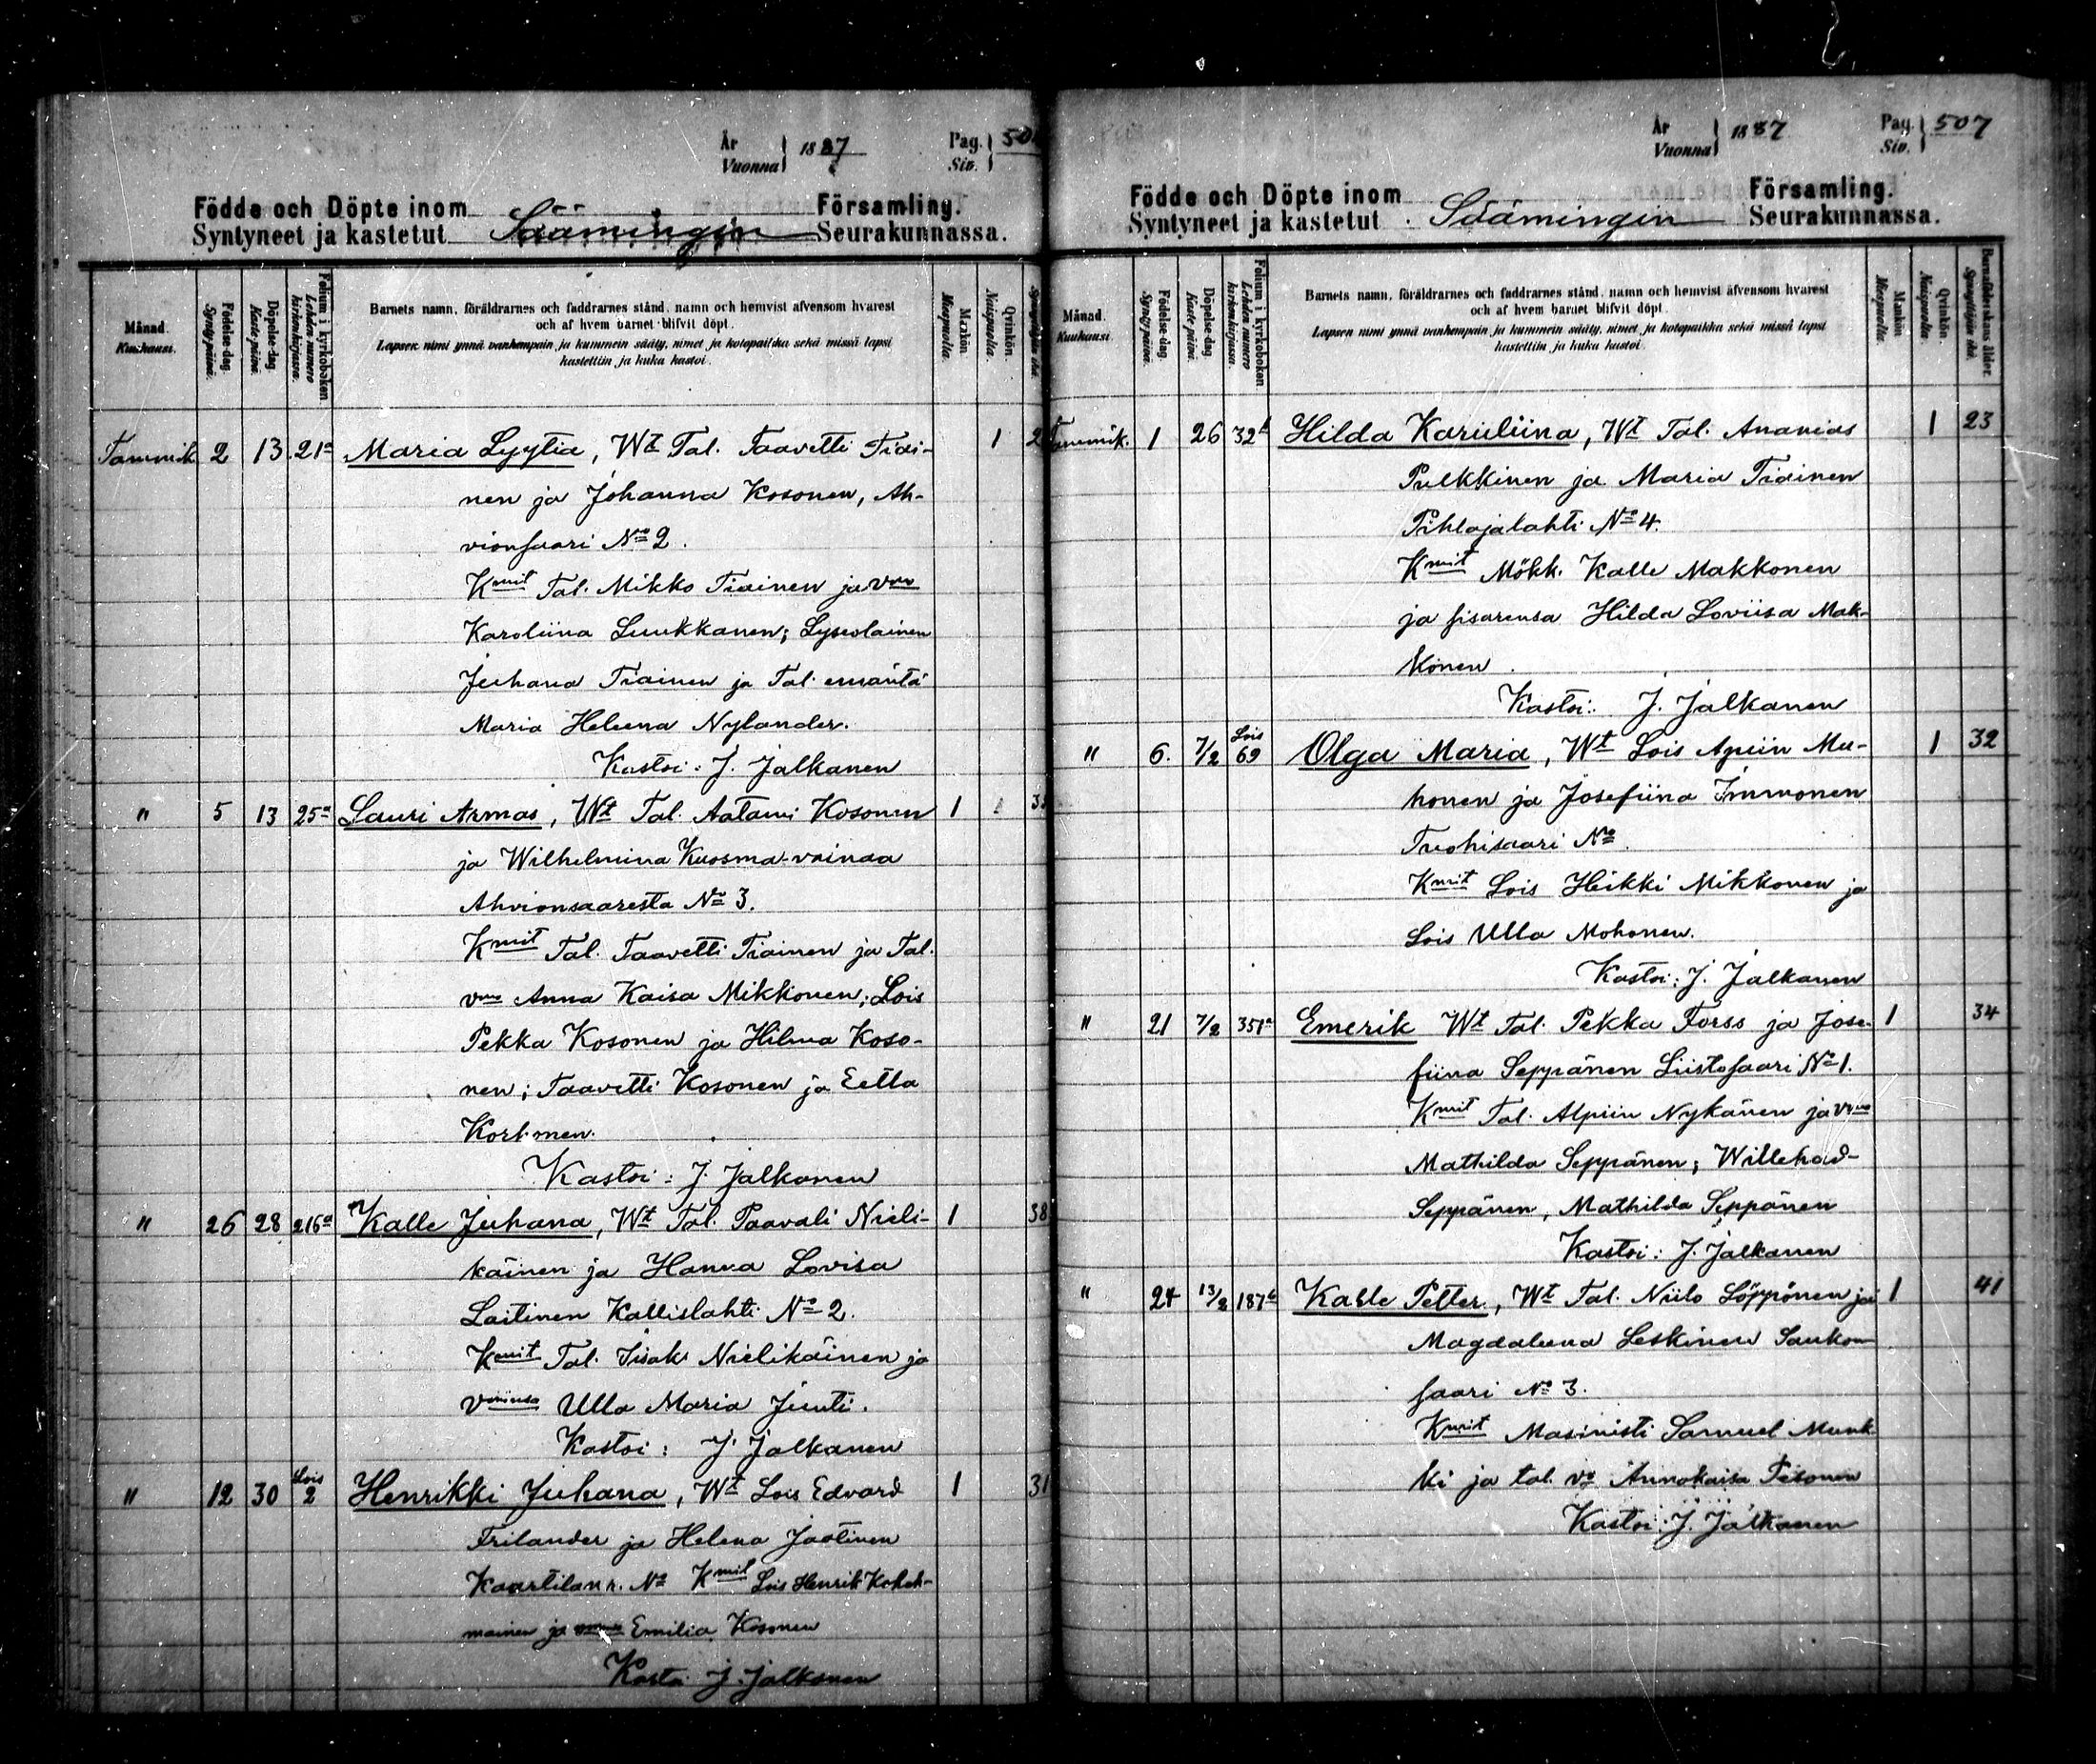 År
Vuonna } 1887
Pag.
Siv. } 50
Födde och Döpte inom Församling.
Syntyneet ja kastetut Säämingin Seurakunnassa.
Månad. Kuukausi.
Födelse-dag. Synty-päivä.
Döpelse-dag. Kaste-päivä.
Folium i kyrkoboken Lehden numero kirkonkirjassa.
Barnets namn, föräldrarnes och faddrarnes stånd, namn och hemvist äfvensom hvarest
och af hvem barnet blifvit döpt.
Lapsen nimi ynnä vanhempain ja kummein sääty, nimet ja kotopaikka sekä missä lapsi
kastettiin ja kuka kastoi.
Mankön. Miespuolia.
Qvinkön. Naispuolia.
Tammik 2 13 21a Maria Lyytia, Wt Tal. Taavetti Tiai- 1 2
nen ja Johanna Kosonen, Ah-
vionsaari No 2.
Kmit Tal. Mikko Tiainen ja vmo
Karoliina Luukkanen; Lyseolainen
Juhana Tiainen ja Tal. emäntä
Maria Heleena Nylander.
Kastoi: J. Jalkanen
" 5 13 25a Lauri Armas, Wt Tal. Aatami Kosonen 1 3
ja Wilhelmina Kuosma-vainaa
Ahvionsaaresta No 3.
Kmit Tal. Taavetti Tiainen ja Tal.
vmo Anna Kaisa Mikkonen; Lois
Pekka Kosonen ja Hilma Koso-
nen; Taavetti Kosonen ja Eetla
Korhonen.
Kastoi: J. Jalkanen
" 26 28 216a Kalle Juhana, Wt Tal. Paavali Nieli- 1 38
käinen ja Hanna Lovisa
Laitinen Kallislahti No 2.
Kmit Tal. Iisakr Nielikäinen ja
vmonsa Ulla Maria Juuti.
Kastoi: J. Jalkanen
" 12 30 Lois 2 Henrikki Juhana, Wt Lois Edvard 1 31
Frilander ja Helena Jaatinen
Kaartilank. No Kmit Lois Henrik
mainen ja Emilia Kosonen
Kastoi J. Jalkanen
År
Vuonna } 1887
Pag.
Siv. } 507
Födde och Döpte inom Församling.
Syntyneet ja kastetut Säämingin Seurakunnassa.
Månad. Kuukausi.
Födelse-dag. Synty-päivä.
Döpelse-dag. Kaste-päivä.
Folium i kyrkoboken Lehden numero kirkonkirjassa.
Barnets namn, föräldrarnes och faddrarnes stånd, namn och hemvist äfvensom hvarest
och af hvem barnet blifvit döpt.
Lapsen nimi ynnä vanhempain ja kummein sääty, nimet ja kotopaikka sekä missä lapsi
kastettiin ja kuka kastoi.
Mankön. Miespuolia.
Qvinkön. Naispuolia.
Barnaföderskans ålder. Synnyttäjän ikä.
Tammik. 1 26 32b Hilda Karuliina, Wt Tal. Ananias 1 23
Pulkkinen ja Maria Tiainen
Pihlajalahti No 4.
Kmit Mökk. Kalle Makkonen
ja sisarensa Hilda Loviisa Mak-
konen.
Kastoi: J. Jalkanen
" 6. 7/2 Lois 69 Olga Maria, Wt Lois Apiin Mu- 1 32
honen ja Josefiina Immonen
Tuohisaari No.
Kmit Lois Heikki Mikkonen ja
Lois Ulla Mohonen.
Kastoi: J. Jalkanen
" 21 7/2 351a Emerik Wt Tal. Pekka Forss ja Jose- 1 34
fiina Seppänen Liistosaari No 1.
Kmit Tal. Alpiin Nykänen ja vmo
Mathilda Seppänen; Willehad-
Seppänen, Mathilda Seppänen
Kastoi: J. Jalkanen
" 24 13/2 187b Kalle Petter, Wt Tal. Niilo Löppönen ja 1 41
Magdaleena Leskinen Saukon-
saari No 3.
Kmit Masinisti Samuel Munk
ki ja tal. vo Annakaisa Pesonen
Kastoi: J. Jalkanen